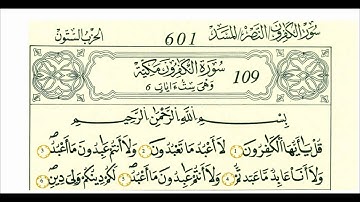 سُوَرُ الكٰفِرُونَ/النَّصْر/المَسَد 601 الحِزبُ السِّتُّون
سُورَةُ الْكٰفِرُونَ مَكِّيَّة 109
وَهِيَ سِتُّ ءَايَاتٍ 6
بِسْمِ اللَّهِ الرَّحْمٰنِ الرَّحِيمِ
قُلْ يَٰٓأَيُّهَا اَ۬لْكَٰفِرُونَ لَآ أَعْبُدُ مَا تَعْبُدُونَ وَلَآ أَنتُمْ عَٰبِدُونَ مَآ أَعْبُدُ
وَلَآ أَنَا عَابِدٌ مَّا عَبَدتُّمْ وَلَآ أَنتُمْ عَٰبِدُونَ مَآ أَعْبُدُ لَكُمْ دِينُكُمْ وَلِيَ دِينِ